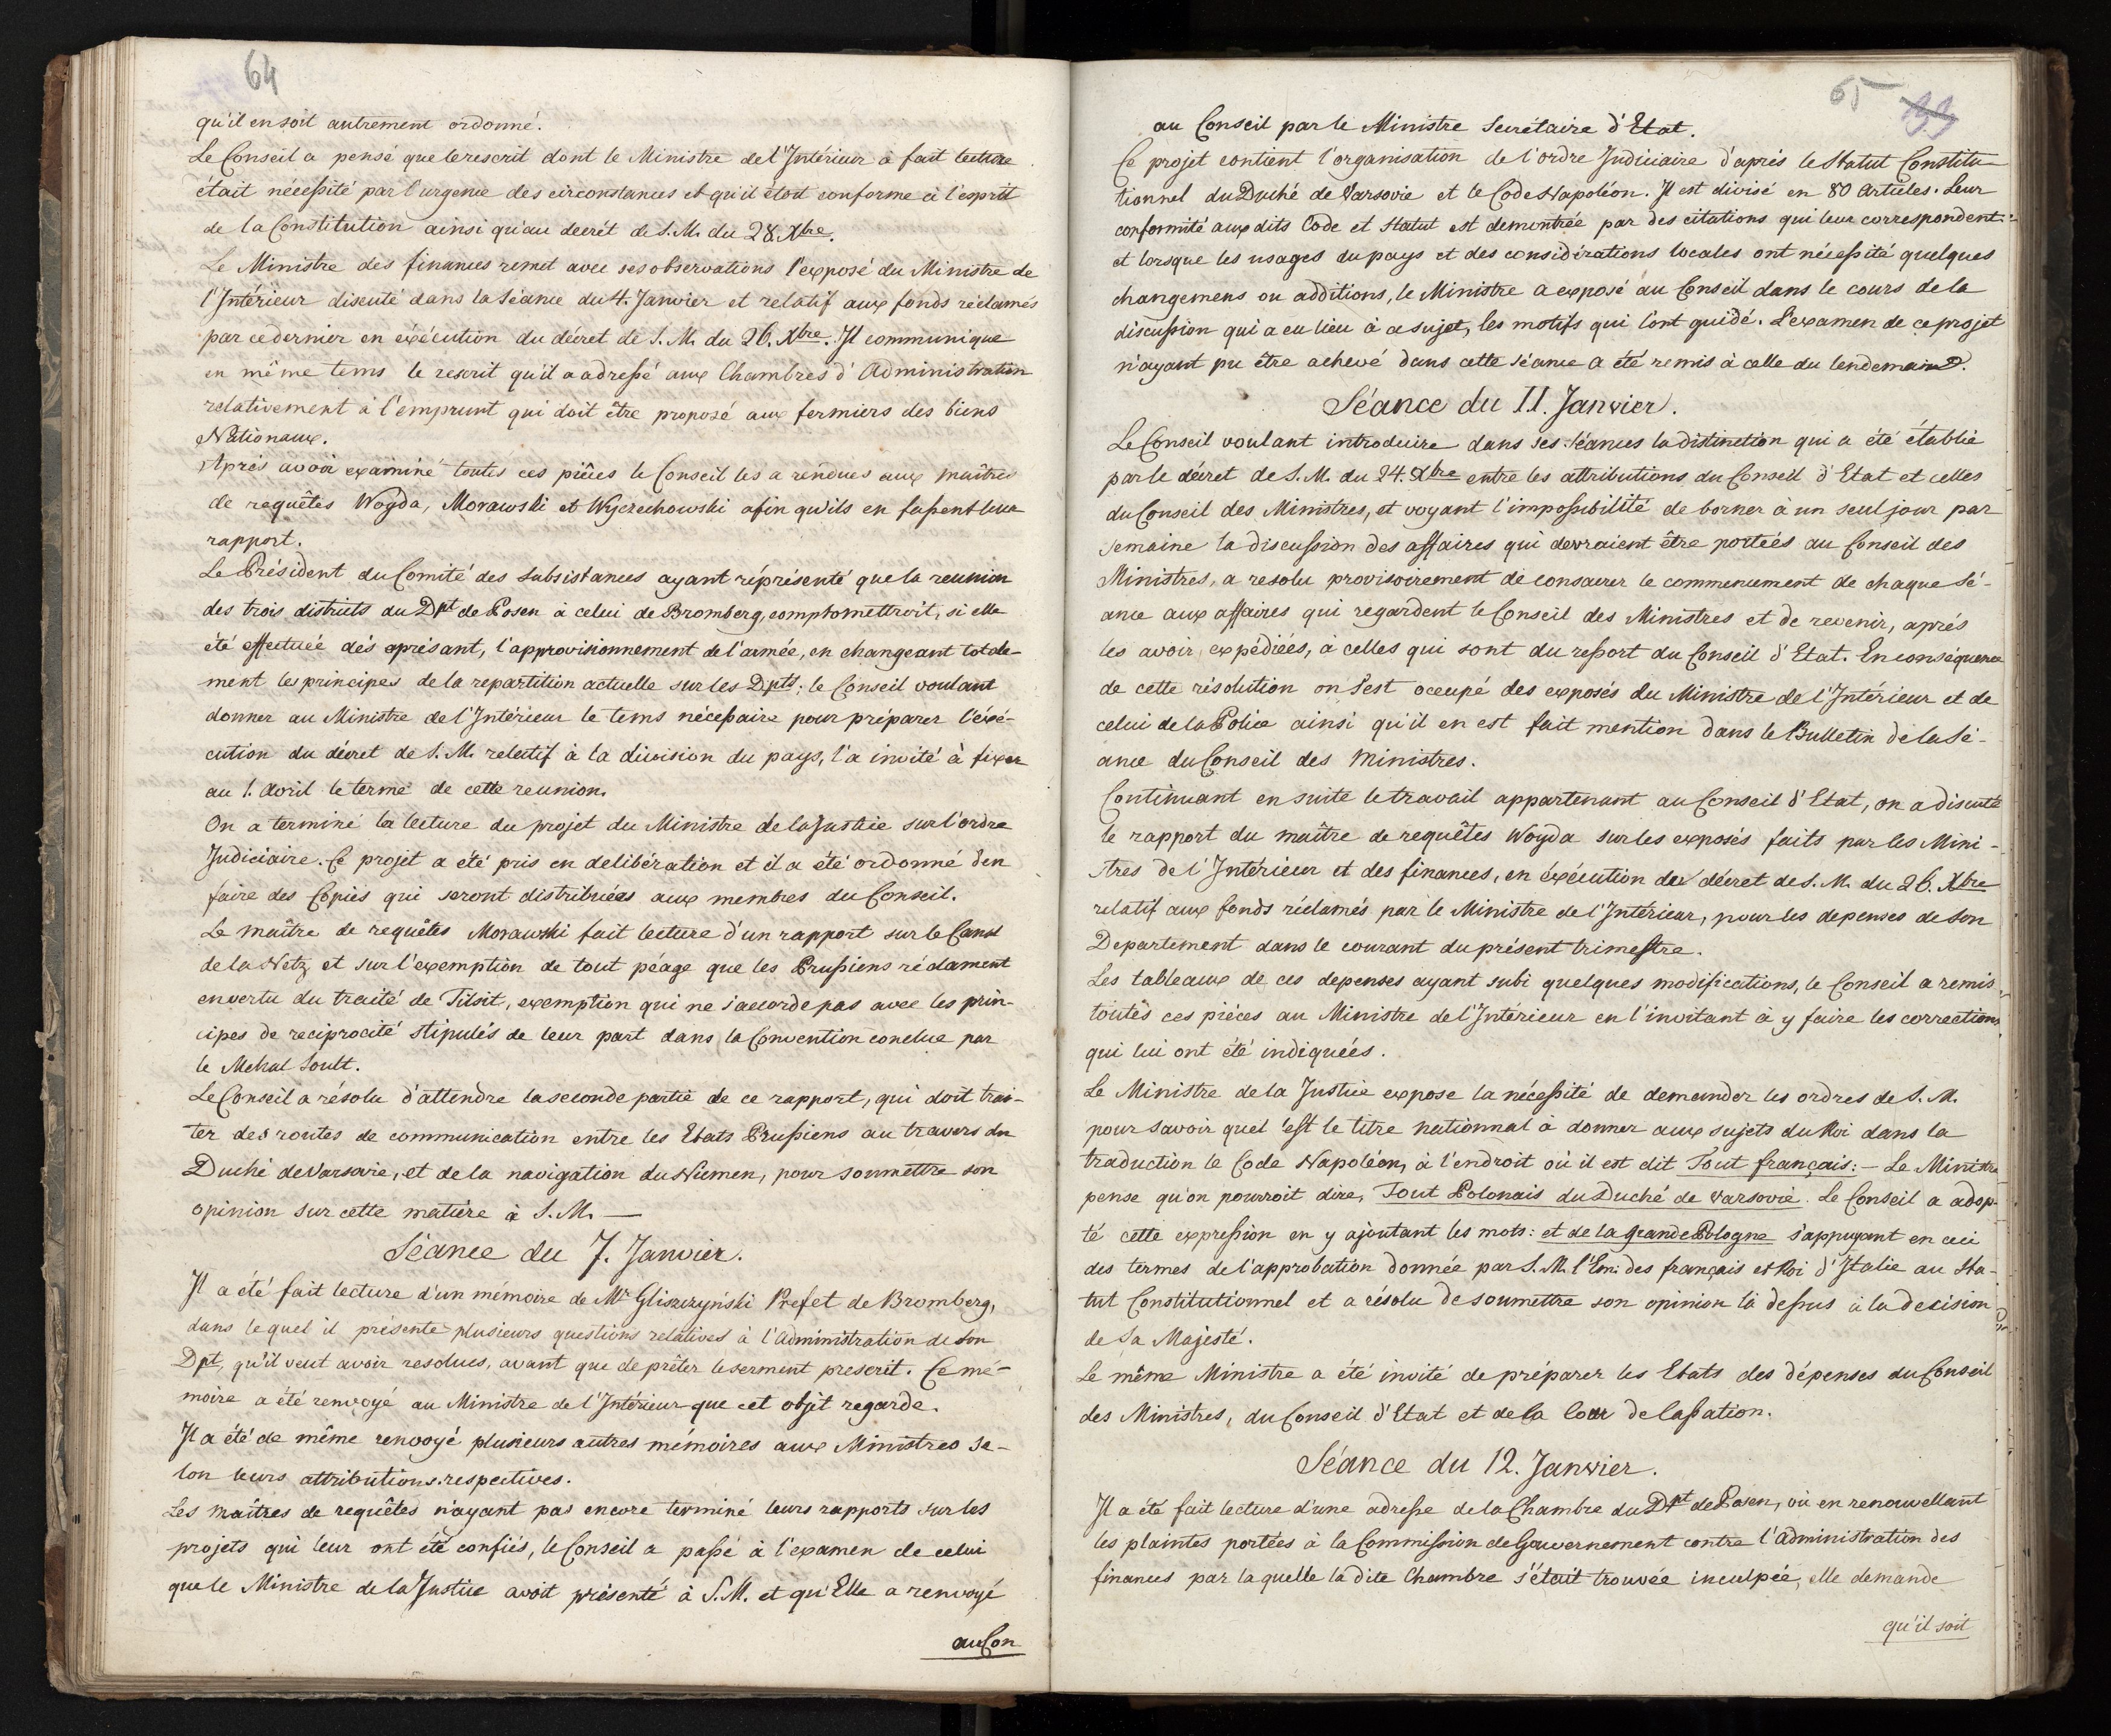 64
qu'il en soit autrement ordonné.
Le Conseil a pensé que le rescrit dont le Ministre de l'Intérieur a fait lecture
était nécessité par l'urgence des circonstances et qu'il étoit conforme à l'esprit
de la Constitution ainsi qu'au decrét de S. M. du 28. Xbre.
Le Ministre des finances remet avec ses observations l'exposé du Ministre de
l'Intérieur discuté dans la Séance du 4. Janvier et relatif aux fonds réclamés
par ce dernier en éxécution du décret de S. M. du 26. Xbre. Il communique
en même tems le rescrit qu'il a adressé aux Chambres d'Administration
relativement à l'emprunt qui doit être proposé aux fermiers des biens
Nationaux.
Aprés avoir examiné toutes ces piéces le Conseil les a rendues aux maîtres
de requêtes Woyda, Morawski et Wyczechowski afin qu'ils en fassent leur
rapport.
Le Président du Comité des subsistances ayant réprésenté que la reunion
des trois districts du Dpt de Posen à celui de Bromberg, compromettroit, si elle
été effectuée dés aprésant, l'approvisionnement de l'armée, en changeant totale-
ment les principes de la repartition actuelle sur les Dpts; le Conseil voulant
donner au Ministre de l'Intérieur le tems nécessaire pour préparer l'éxé-
cution du décret de S. M. relatif à la division du pays, l'a invité à fixer
au 1. Avril le terme de cette reunion.
On a terminé la lecture du projet du Ministre de la Justice sur l'ordre
Judiciaire. Ce projet a été pris en delibération et il a été ordonné d'en
faire des Copies qui seront distribuées aux membres du Conseil.
Le maître de requêtes Morawski fait lecture d'un rapport sur le Canal
de la Netz, et sur l'exemption de tout péage que les Prussiens réclament
en vertu du traité de Tilsit, exemption qui ne s'accorde pas avec les prin-
cipes de reciprocité stipulés de leur part dans la Convention conclue par
le Mchal Soult.
Le Conseil a résolu d'attendre la seconde partie de ce rapport, qui doit trai-
ter des routes de communication entre les Etats Prussiens au travers du
Duché de Varsovie, et de la navigation du Niemen, pour soumettre son
opinion sur cette matière à S. M. —
Séance du 7. Janvier.
Il a été fait lecture d'un mémoire de Mr Gliszczyński Préfet de Bromberg,
dans lequel il présente plusieurs questions relatives à l'Administration de son
Dpt, qu'il veut avoir resolues, avant que de prêter le serment prescrit. Ce mé-
moire a été renvoyé au Ministre de l'Intérieur que cet objet regarde.
Il a été de même renvoyé plusieurs autres mémoires aux Ministres se-
lon leurs attributions respectives.
Les maîtres de requêtes n'ayant pas encore terminé leurs rapports sur les
projets qui leur ont été confiés, le Conseil a passé à l'examen de celui
que le Ministre de la Justice avoit présenté à S. M. et qu'Elle a renvoyé
au Con
65
33
au Conseil par le Ministre Secrétaire d'Etat.
Ce projet contient l'organisation de l'ordre Judiciaire d'aprés le Statut Constitu-
tionnel du Duché de Varsovie et le Code Napoléon. Il est divisé en 80 Articles. Leur
conformité aux dits Code et Statut est demontrée par des citations qui leur correspondent
et lorsque les usages du pays et des considérations locales ont nécessité quelques
changemens ou additions, le Ministre a exposé au Conseil dans le cours de la
discussion qui a eu lieu à ce sujet, les motifs qui l'ont guidé. L'examen de ce projet
n'ayant pu être achevé dans cette séance a été remis à celle du lendemain.
Séance du 11. Janvier.
Le Conseil voulant introduire dans ses Séances la distinction qui a été établie
par le décret de S. M. du 24. Xbre entre les attributions du Conseil d'Etat et celles
du Conseil des Ministres, et voyant l'impossibilité de borner à un seul jour par
semaine la discussion des affaires qui devraient être portées au Conseil des
Ministres, a resolu provisoirement de consacrer le commencement de chaque Sé-
ance aux affaires qui regardent le Conseil des Ministres et de revenir, aprés
les avoir expédiées, à celles qui sont du ressort du Conseil d'Etat. En conséquence
de cette résolution on s'est occupé des exposés du Ministre de l'Intérieur et de
celui de la Police ainsi qu'il en est fait mention dans le Bulletin de la Sé-
ance du Conseil des Ministres.
Continuant en suite le travail appartenant au Conseil d'Etat, on a discuté
le rapport du maître de requêtes Woyda sur les exposés faits par les Mini-
stres de l'Intérieur et des finances, en éxécution du décret de S. M. du 26. Xbre
relatif aux fonds réclamés par le Ministre de l'Intérieur, pour les depenses de son
Departement dans le courant du présent trimestre.
Les tableaux de ces depenses ayant subi quelques modifications, le Conseil a remis
toutes ces piéces au Ministre de l'Intérieur en l'invitant à y faire les corrections
qui lui ont été indiquées.
Le Ministre de la Justice expose la nécessité de demander les ordres de S. M.
pour savoir quel est le titre nationnal à donner aux sujets du Roi dans la
traduction le Code Napoléon, à l'endroit où il est dit Tout français: — Le Ministre
pense qu'on pourroit dire, Tout Polonais du Duché de Varsovie. Le Conseil a adop-
té cette expression en y ajoutant les mots: et de la grande Pologne s'appuyant en ceci
des termes de l'approbation donnée par S. M. l'Em: des français et Roi d'Italie au Sta-
tut Constitutionnel et a résolu de soumettre son opinion là dessus à la decision
de Sa Majesté.
Le même Ministre a été invité de préparer les Etats des dépenses du Conseil
des Ministres, du Conseil d'Etat et de la Cour de Cassation.
Séance du 12. Janvier.
Il a été fait lecture d'une adresse de la Chambre du Dpt de Posen, où en renouvellant
les plaintes portées à la Commission de Gouvernement contre l'Administration des
finances par laquelle la dite Chambre s'était trouvée inculpée, elle demande
qu'il soit